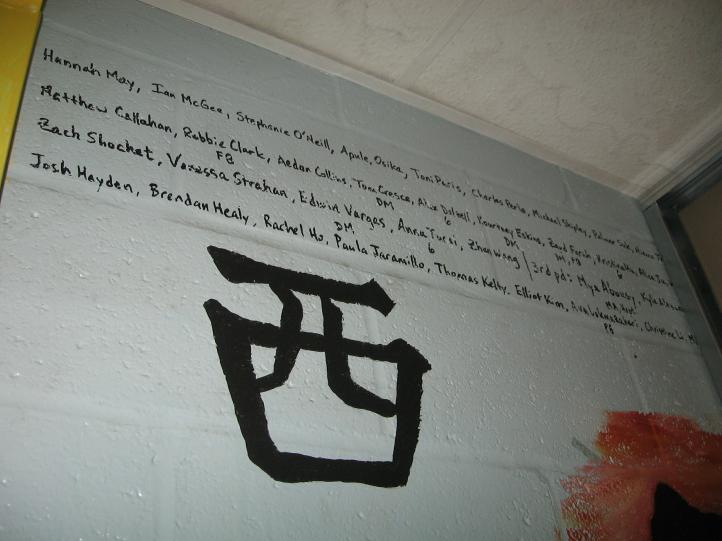 Hannah May, Ian McGee, Stephanie O'Neill, Apule Osika, Toni Paris, Charles Perla, Michael Shipley,
Matthew Callahan, Robbie Clark, Aedan Collins, Tom Crosca, Alix Dalzell, Kourtney Eskins,
FB DM 6 DM
Zach Shochet, Vanessa Strahan, Edwin Vargas, Anna Tursi, Zhen Wang / 3rd pd: Miya Abousy,
DM 6
Josh Hayden, Brendan Healy, Rachel Ho, Paula Jaramillo, Thomas Kelty, Elliot Kim, Christine
FB
西